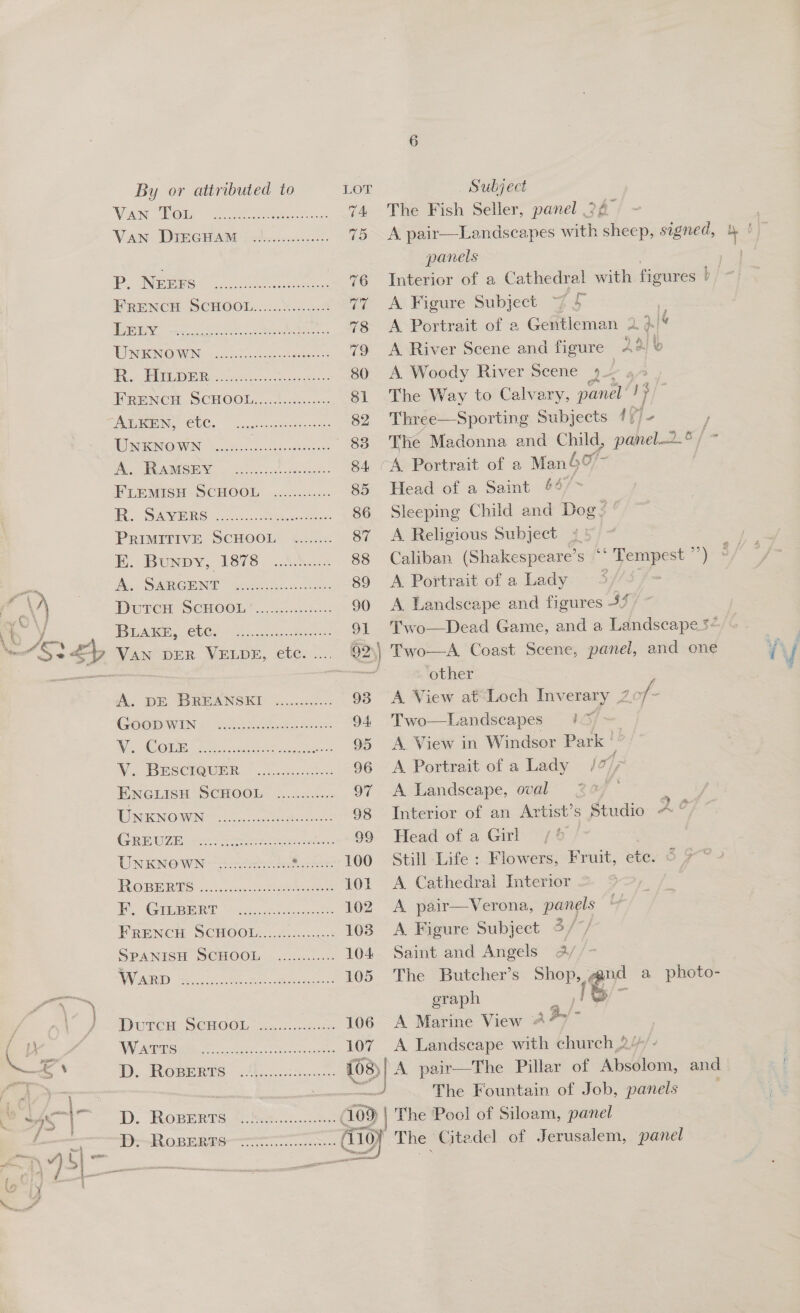 6
By or attributed to LOT Subject
VAN TOL ............ 74 The Fish Seller, panel
VAN DIEGHAM ............ 75 A pair—Landscapes with sheep, signed,
panels
P. NEEFS ............ 76 Interior of a Cathedral with figures
FRENCH SCHOOL............ 77 A Figure Subject
LELY ............ 78 A Portrait of a Gentleman
UNKNOWN ............ 79 A River Scene and figure
R. HILDER ............ 80 A Woody River Scene
FRENCH SCHOOL............ 81 The Way to Calvary, panel
ALKEN, etc. ............ 82 Three—Sporting Subjects
UNKNOWN ............ 83 The Madonna and Child, panel
A. RAMSEY ............ 84 A Portrait of a Man
FLEMISH SCHOOL ............ 85 Head of a Saint
R. SAYERS ............ 86 Sleeping Child and Dog
PRIMITIVE SCHOOL ........ 87 A Religious Subject
E. BUNDY, 1878 ............ 88 Caliban (Shakespeare's “Tempest”)
A. SARGENT ............ 89 A Portrait of a Lady
DUTCH SCHOOL ............ 90 A Landscape and figures
BLAKE, etc. ............ 91 Two—Dead Game, and a Landscape
VAN DER VELDE, etc. .... 92 Two—A Coast Scene, panel, and one
other
A. DE BREANSKI ............ 93 A View at Loch Inverary
GOODWIN ............ 94 Two—Landscapes
V. COLE ............ 95 A View in Windsor Park
V. BESCIQUER ............ 96 A Portrait of a Lady
ENGLISH SCHOOL ............ 97 A Landscape, oval
UNKNOWN ............ 98 Interior of an Artist's Studio
GREUZE ............ 99 Head of a Girl
UNKNOWN ............ 100 Still Life: Flowers, Fruit, etc.
ROBERTS ............ 101 A Cathedral Interior
F. GILBERT ............ 102 A pair—Verona, panels
FRENCH SCHOOL............ 103 A Figure Subject
SPANISH SCHOOL ............ 104 Saint and Angels
WARD ............ 105 The Butcher's Shop, and a photo-
graph
DUTCH SCHOOL ............ 106 A Marine View
WATTS ............ 107 A Landscape with church
D. ROBERTS ............ 108 A pair—The Pillar of Absolom, and
The Fountain of Job, panels
D. ROBERTS ............ 109 The Pool of Siloam, panel
D. ROBERTS ............ 110 The Citadel of Jerusalem, panel